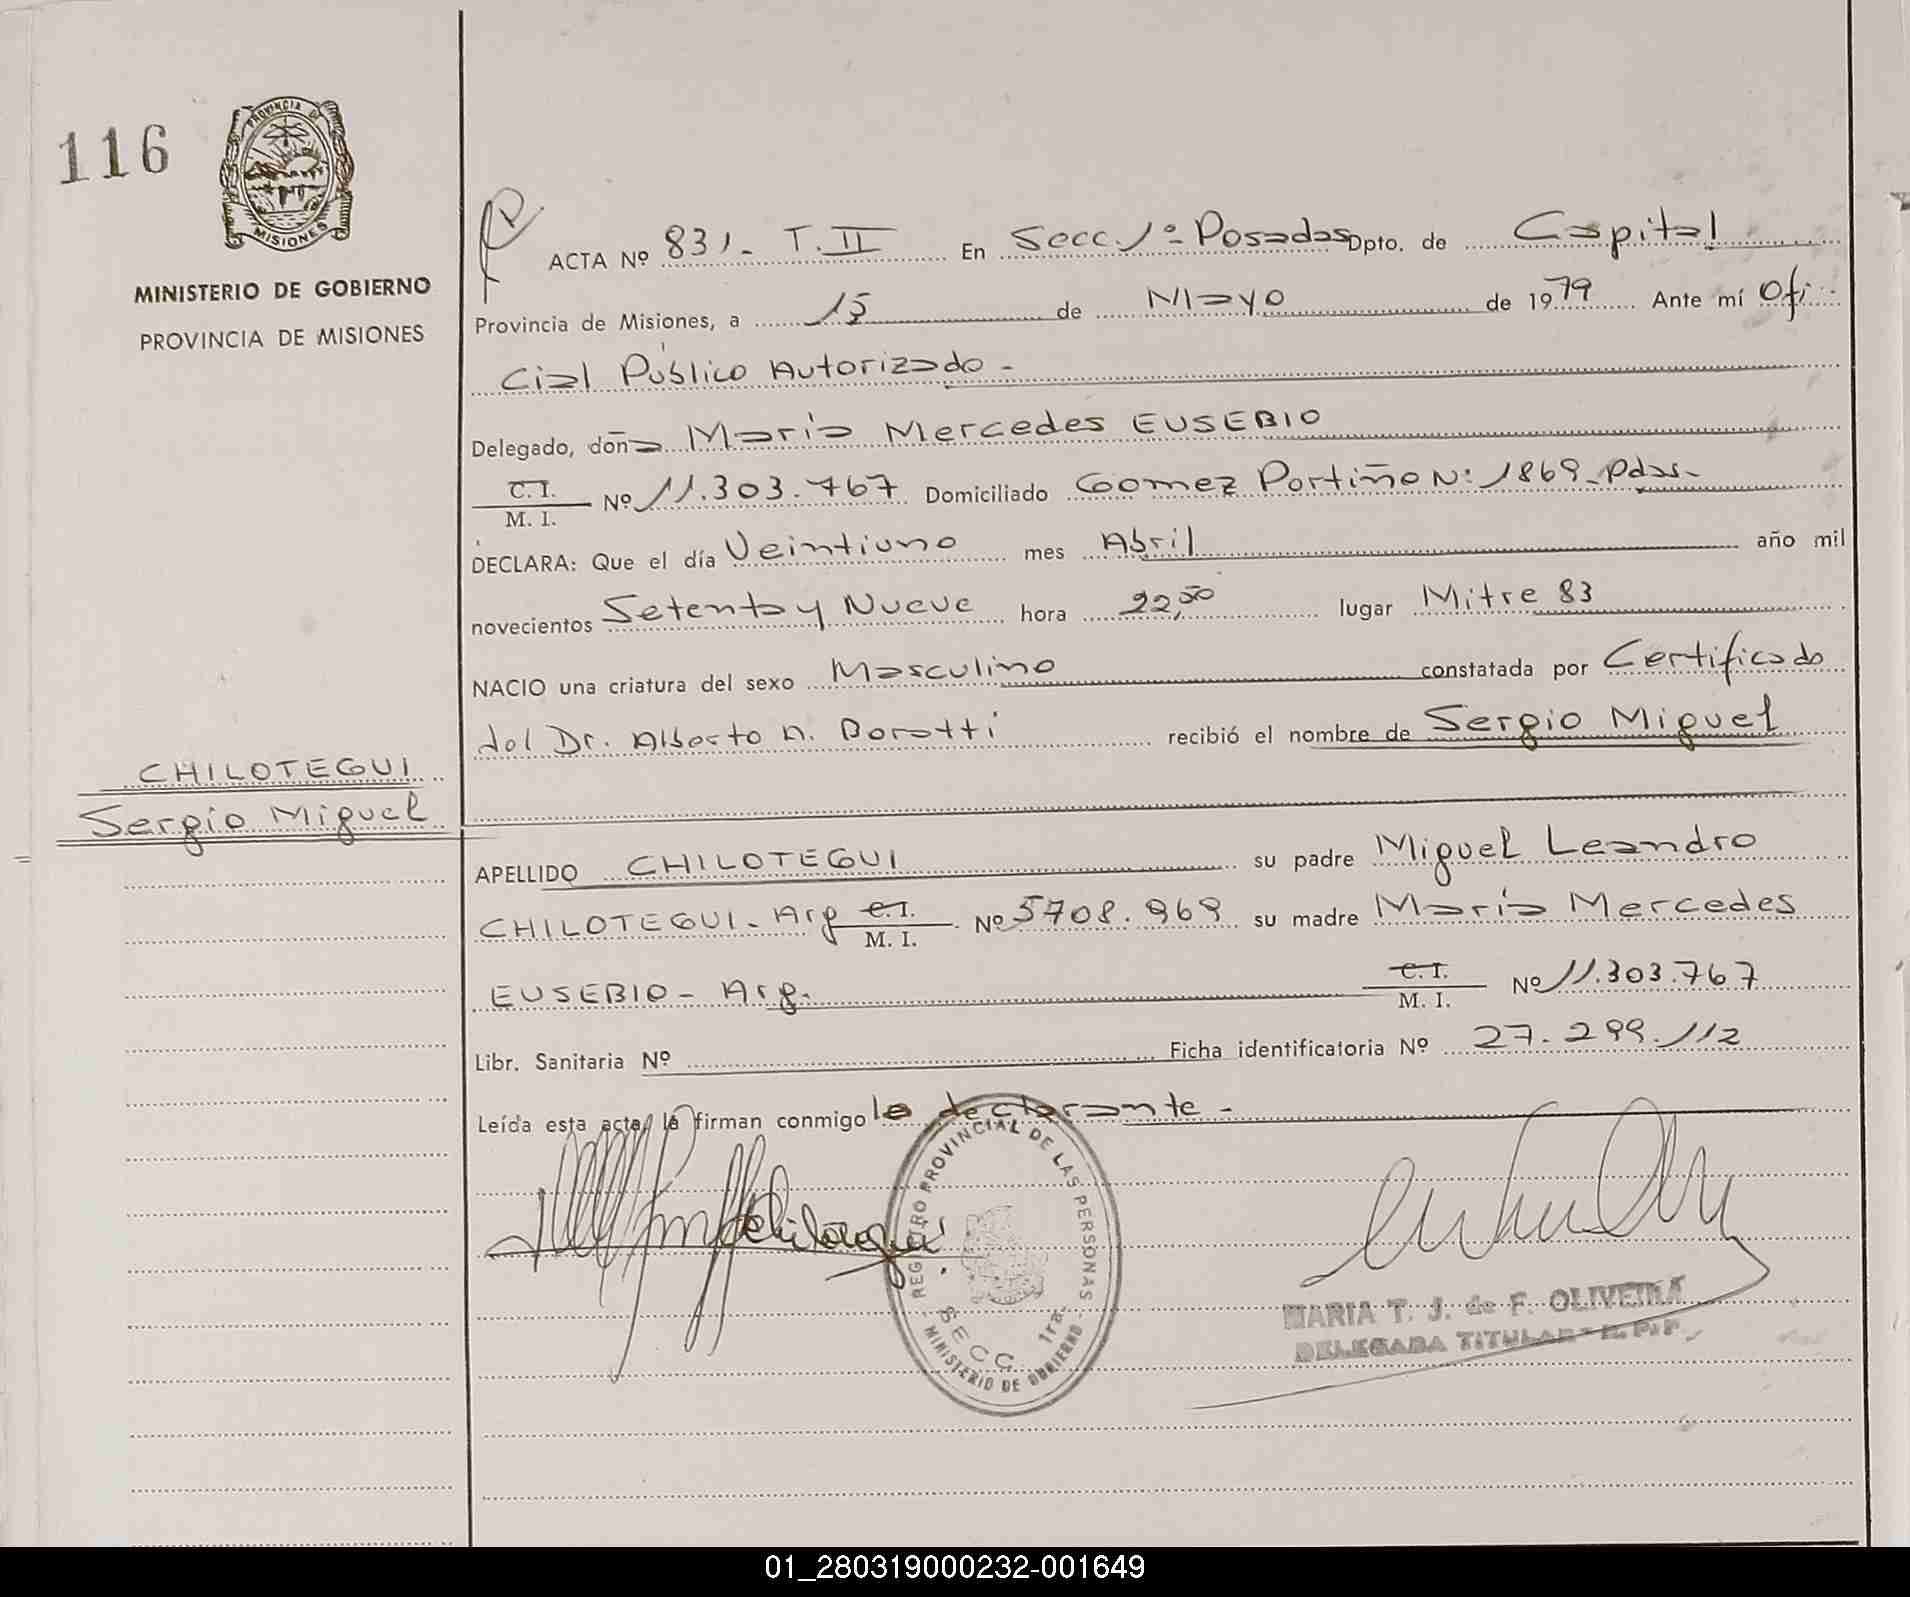 116
PROVINCIA DE
MISIONES
MINISTERIO DE GOBIERNO
PROVINCIA DE MISIONES
ACTA Nº 831- T. II En Secc. 1ª- Posadas Dpto. de Capital
Provincia de Misiones, a 15 de Mayo de 1979 Ante mí Ofi
cial Público Autorizado -
Delegado, doña María Mercedes EUSEBIO
C. I.
M. I. Nº 11.303.767 Domiciliado Gomez Portiño Nº 1869- Pdas-
DECLARA: Que el día Veintiuno mes Abril año mil
novecientos Setenta y Nueve hora 22,50 lugar Mitre 83
NACIO una criatura del sexo Masculino constatada por Certificado
del Dr. Alberto A. Borotti recibió el nombre de Sergio Miguel
CHILOTEGUI
Sergio Miguel
APELLIDO CHILOTEGUI su padre Miguel Leandro
CHILOTEGUI- Arg C. I. M. I. Nº 5708.969 su madre María Mercedes
EUSEBIO - Arg. C. I. M. I. Nº 11.303.767
Libr. Sanitaria Nº Ficha identificatoria Nº 27.299.112
Leída esta acta, la firman conmigo la declarante -
REGISTRO PROVINCIAL DE LAS PERSONAS
SECC. 1ra.
- MINISTERIO DE GOBIERNO -
MARIA T. J. de F. OLIVEIRA
DELEGADA TITULAR - R. P. P.
01_280319000232-001649